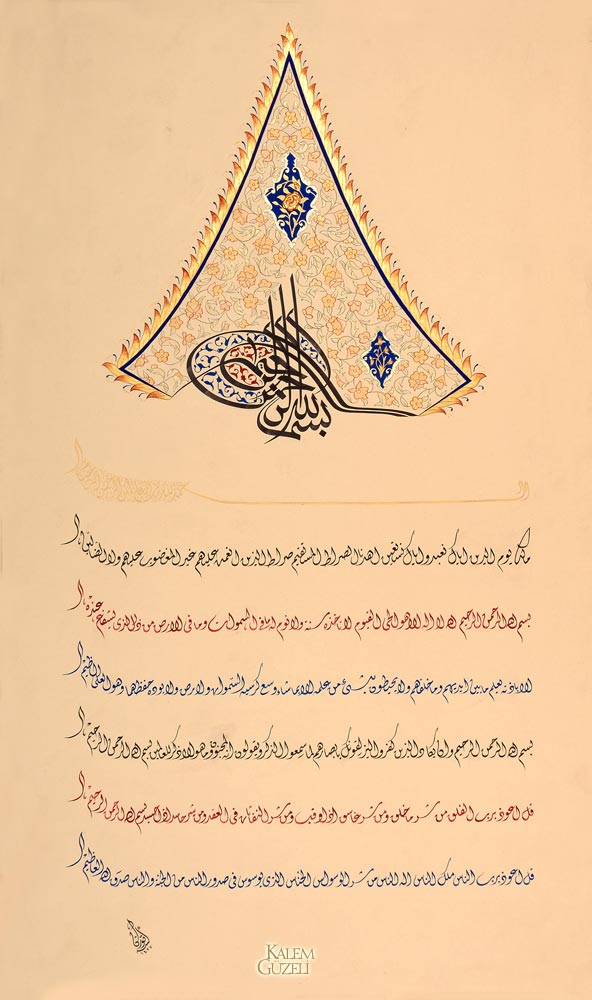 بسم الله الرحمن الرحيم
مالك يوم الدين اياك نعبد واياك نستعين اهدنا الصراط المستقيم صراط الذين انعمت عليهم غير المغضوب عليهم ولا الضالين
بسم الله الرحمن الرحيم الله لا اله الا هو الحي القيوم لا تاخذه سنة ولا نوم له ما في السموات وما في الارض من ذا الذي يشفع عنده
الا باذنه يعلم ما بين ايديهم وما خلفهم ولا يحيطون بشئ من علمه الا بما شاء وسع كرسيه السموات والارض ولا يوده حفظهما وهو العلي العظيم
بسم الله الرحمن الرحيم وان يكاد الذين كفروا ليزلقونك بابصارهم لما سمعوا الذكر ويقولون انه لمجنون وما هو الا ذكر للعالمين بسم الله الرحمن الرحيم
قل اعوذ برب الفلق من شر ما خلق ومن شر غاسق اذا وقب ومن شر النفاثات في العقد ومن شر حاسد اذا حسد بسم الله الرحمن الرحيم
قل اعوذ برب الناس ملك الناس اله الناس من شر الوسواس الخناس الذي يوسوس في صدور الناس من الجنة والناس صدق الله العظيم
KALEM
GÜZELİ